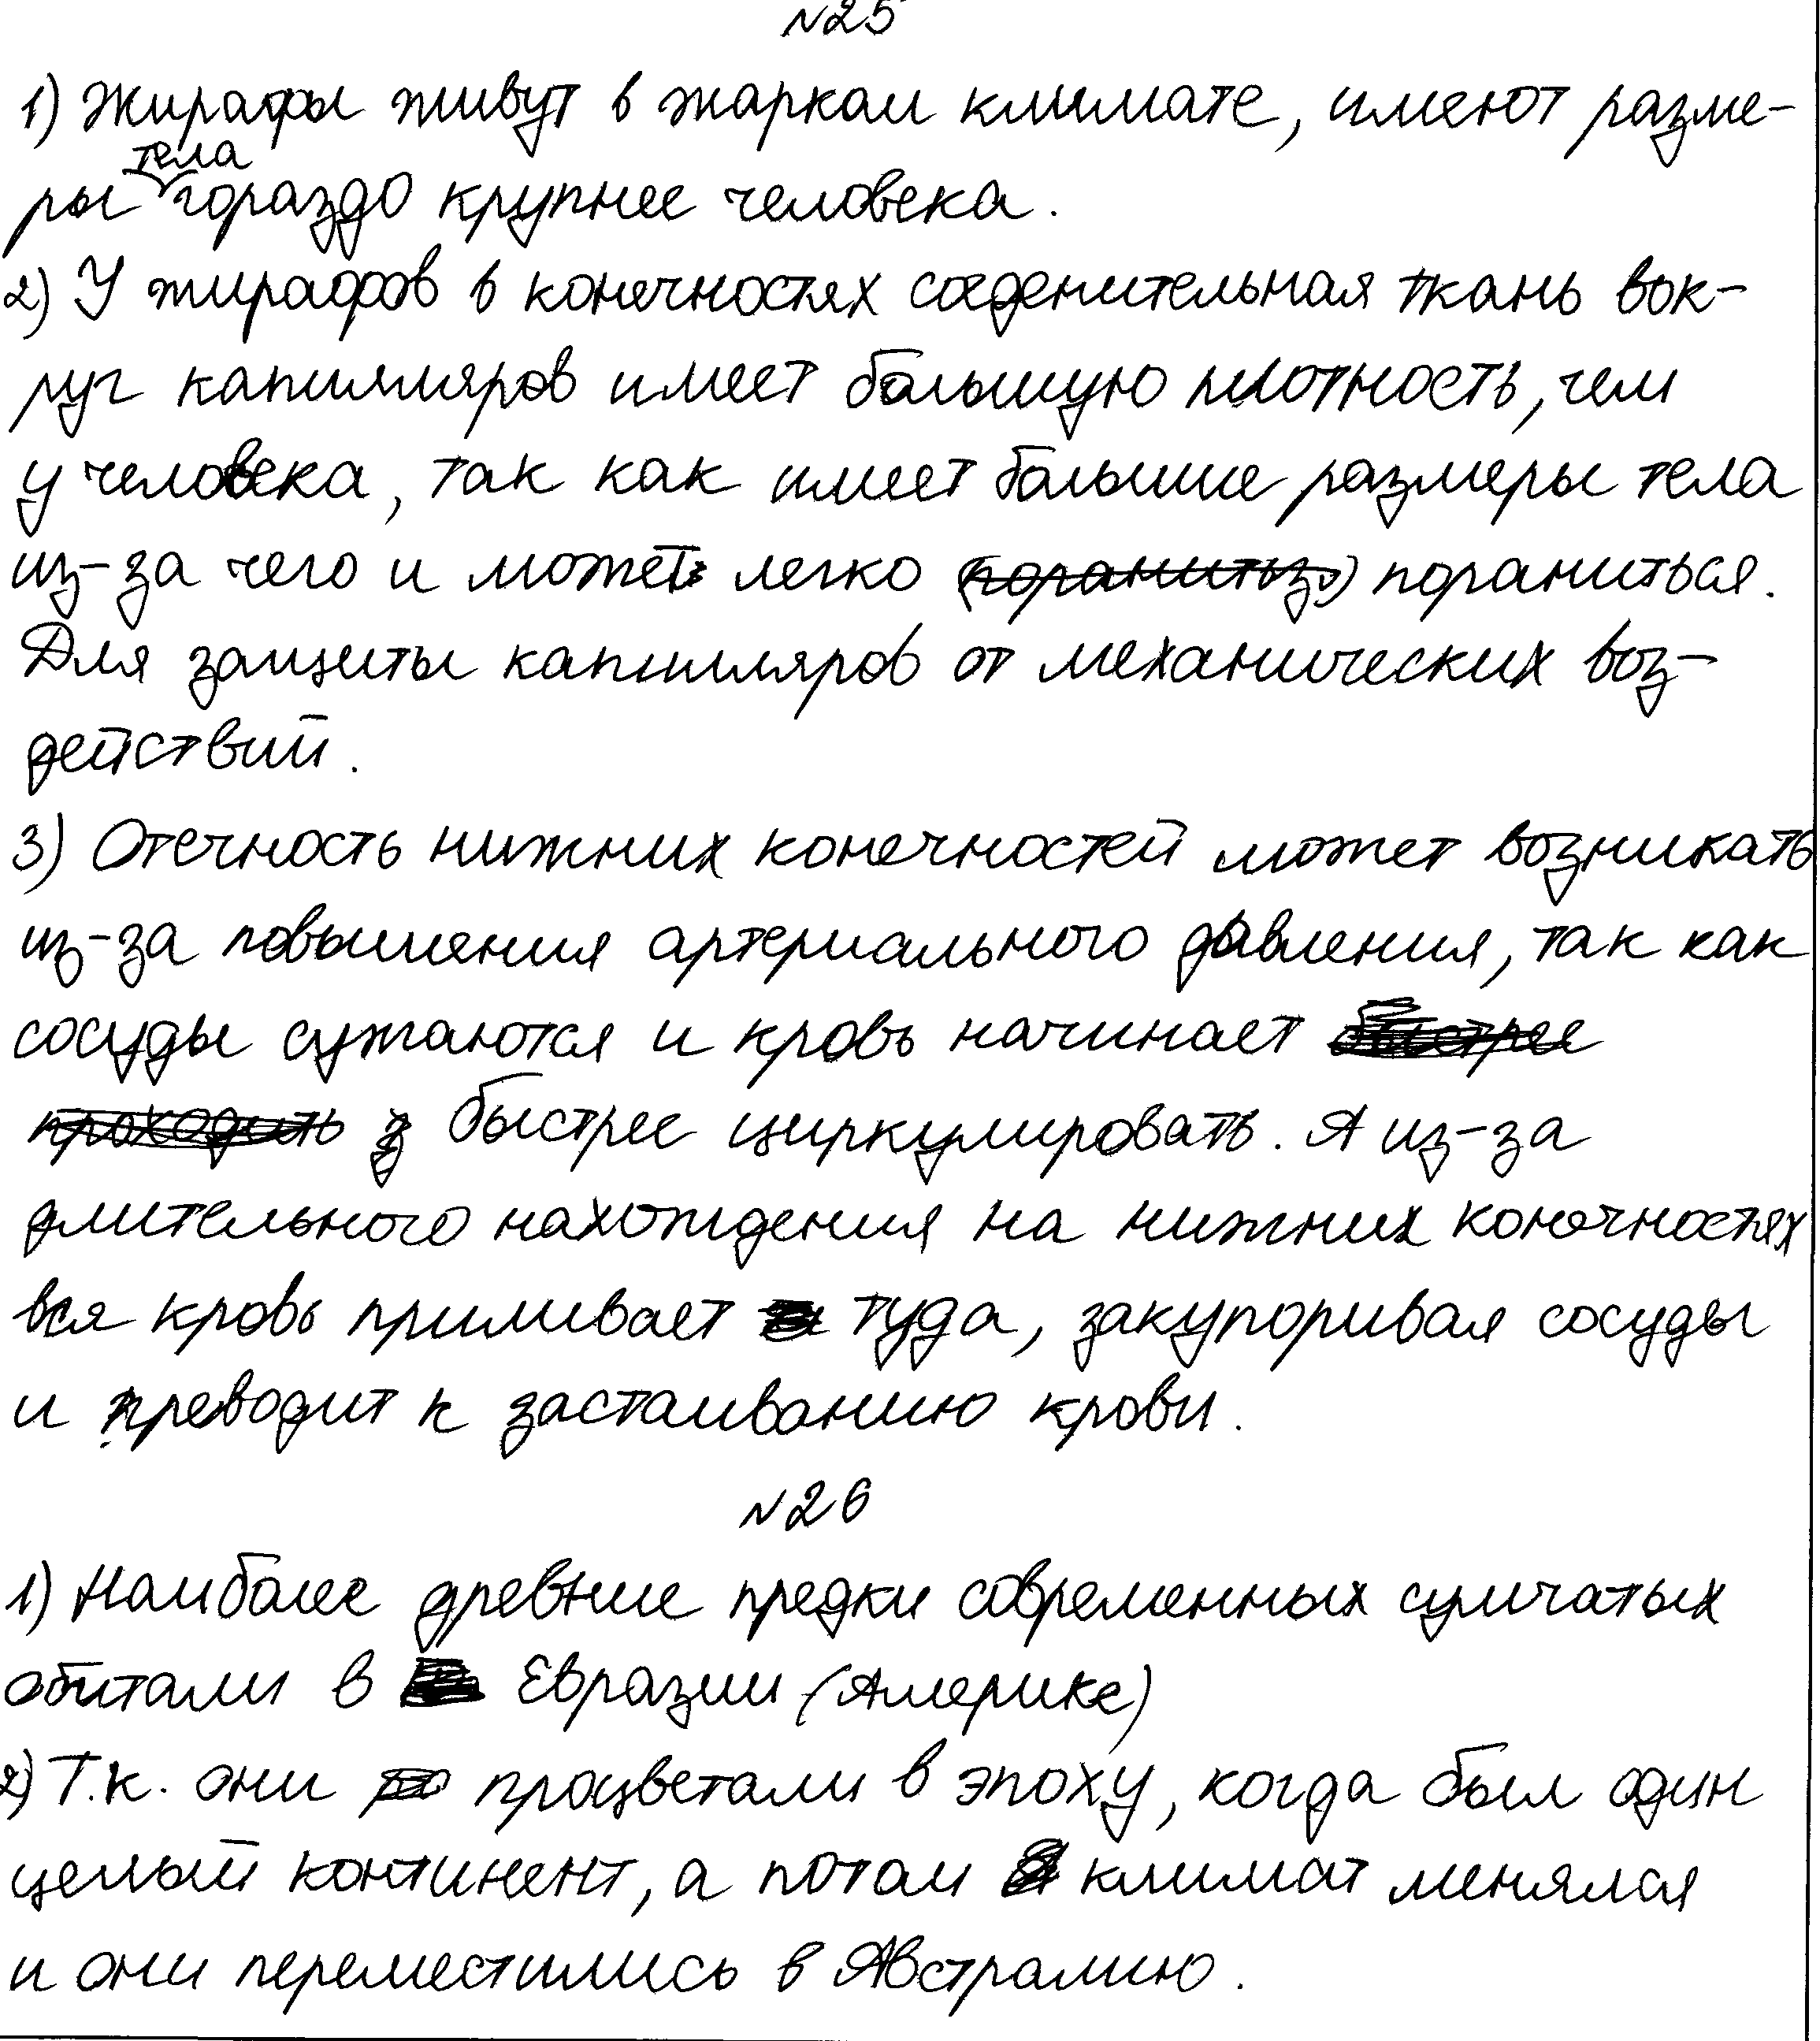 №25
1) Жирафы живут в жарком климате, имеют разме-
тела
ры гораздо крупнее человека.
2) У жирафов в конечностях соеденительная ткань вок-
руг капилляров имеет большую плотность, чем
у человека, так как имеет большие размеры тела
из-за чего и может легко (поранитьзя) пораниться.
Для защиты капилляров от механических воз-
действий.
3) Отечность нижних конечностей может возникать
из-за повышения артериального давления, так как
сосуды сужаются и кровь начинает быстрее
проходить з быстрее циркулировать. А из-за
длительного нахождения на нижних конечностях
вся кровь приливает туда, закупоривая сосуды
и преводит к застаиванию крови.
№26
1) Наиболее древние предки современных сумчатых
обитали в Евразии (Америке)
2) Т.к. они по процветали в эпоху, когда был один
целый континент, а потом климат менялся
и они переместились в Австралию.